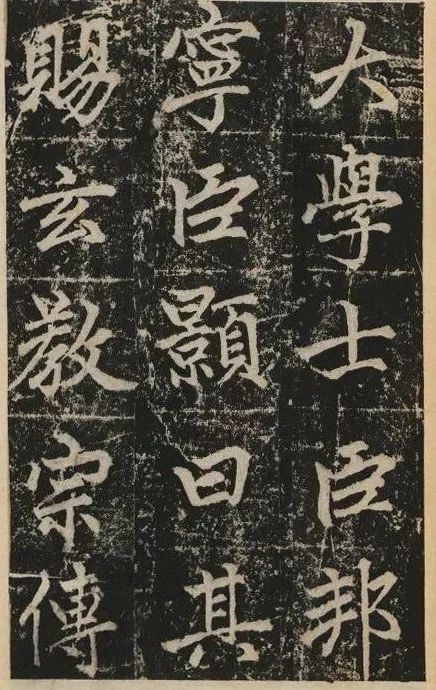 大學士臣邦
寧臣顥曰其
賜玄教宗傳